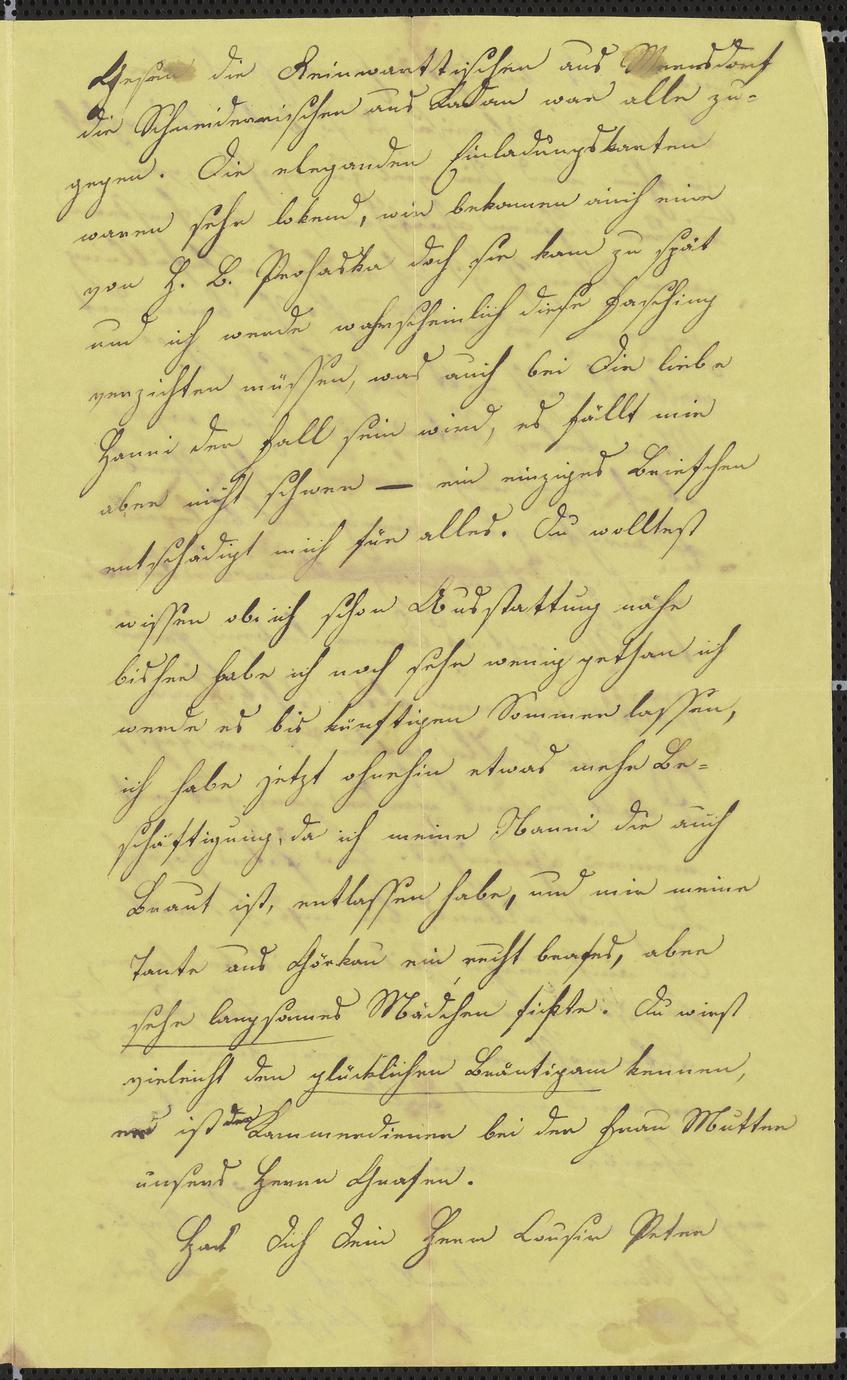 die Reinwarttischen aus
die Schneiderrischen aus Kadan war alle zu-
gegen. Die eleganden Einladungskarten
waren sehr lokend, wir bekamen auch eine
von H. B. Prohaska doch sie kam zu spät
und ich werde wahrscheinlich diese Fasching
verzichten müssen, was auch bei Die liebe
Hanni der Fall sein wird, es fällt mir
aber nicht schwer — ein einziges Briefchen
entschädigt mich für alles. Du wolltest
wissen ob ich schon Ausstattung nähe
bisher habe ich noch sehr wenig gethan ich
werde es bis künftigen Sommer lassen,
ich habe jetzt ohnehin etwas mehr Be-
schäftigung, da ich meine Nanni die auch
Braut ist, entlassen habe, und mir meine
Tante aus Görkau ein recht brafes, aber
sehr langsames Mädchen sickte. Du wirst
vieleicht den glücklichen Bräutigam kennen,
ist der Kammerdiener bei der Frau Mutter
unsers Herrn Grafen.
Hat Dich Dein Herr Cousin Peter